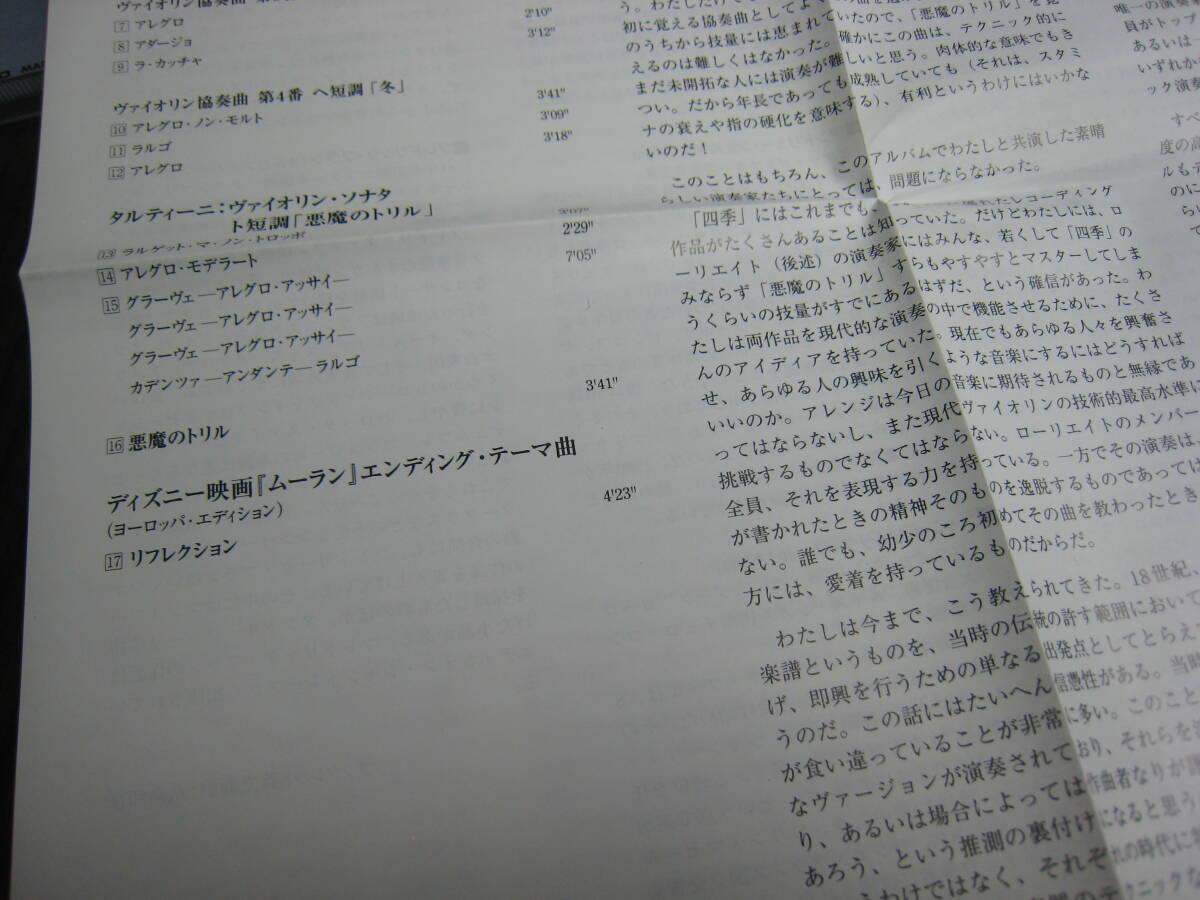 ヴァイオリン協奏曲
7 アレグロ 2'10"
8 アダージョ 3'12"
9 ラ・カッチャ
ヴァイオリン協奏曲 第4番 ヘ短調「冬」
10 アレグロ・ノン・モルト 3'41"
11 ラルゴ 3'09"
12 アレグロ 3'18"
タルティーニ：ヴァイオリン・ソナタ
ト短調「悪魔のトリル」
13 ラルゲット・マ・ノン・トロッポ
14 アレグロ・モデラート 2'29"
15 グラーヴェ―アレグロ・アッサイ― 7'05"
グラーヴェ―アレグロ・アッサイ―
グラーヴェ―アレグロ・アッサイ―
カデンツァ―アンダンテ―ラルゴ
16 悪魔のトリル 3'41"
ディズニー映画『ムーラン』エンディング・テーマ曲
(ヨーロッパ・エディション)
17 リフレクション 4'23"
初に覚える協奏曲としてよ
のうちから技量には恵まれていたので、「悪魔のトリル」を覚
えるのは難しくはなかった。確かにこの曲は、テクニック的に
まだ未開拓な人には演奏が難しいと思う。肉体的な意味でもき
つい。だから年長であっても成熟していても（それは、スタミ
ナの衰えや指の硬化を意味する）、有利というわけにはいかな
いのだ！
このことはもちろん、このアルバムでわたしと共演した素晴
らしい演奏家たちにとっては、問題にならなかった。
「四季」にはこれまでも、 レコーディング
作品がたくさんあることは知っていた。だけどわたしには、ロ
ーリエイト（後述）の演奏家にはみんな、若くして「四季」の
みならず「悪魔のトリル」すらもやすやすとマスターしてしま
うくらいの技量がすでにあるはずだ、という確信があった。わ
たしは両作品を現代的な演奏の中で機能させるために、たくさ
んのアイディアを持っていた。現在でもあらゆる人々を興奮さ
せ、あらゆる人の興味を引くような音楽にするにはどうすれば
いいのか。アレンジは今日の音楽に期待されるものと無縁であ
ってはならないし、また現代ヴァイオリンの技術的最高水準に
挑戦するものでなくてはならない。ローリエイトのメンバー
全員、それを表現する力を持っている。一方でその演奏は、
が書かれたときの精神そのものを逸脱するものであっては
ない。誰でも、幼少のころ初めてその曲を教わったとき
方には、愛着を持っているものだからだ。
わたしは今まで、こう教えられてきた。18世紀、
楽譜というものを、当時の伝統の許す範囲において
げ、即興を行うための単なる出発点としてとらえ
うのだ。この話にはたいへん信憑性がある。当時
が食い違っていることが非常に多い。このこと
なヴァージョンが演奏されており、それらを
り、あるいは場合によっては作曲者なりが
あろう、という推測の裏付けになると思う
うわけではなく、それぞれの時代に
唯一の演奏
員がトップ
あるいは
いずれか
ック演奏
すべ
度の高
ルもテ
のに